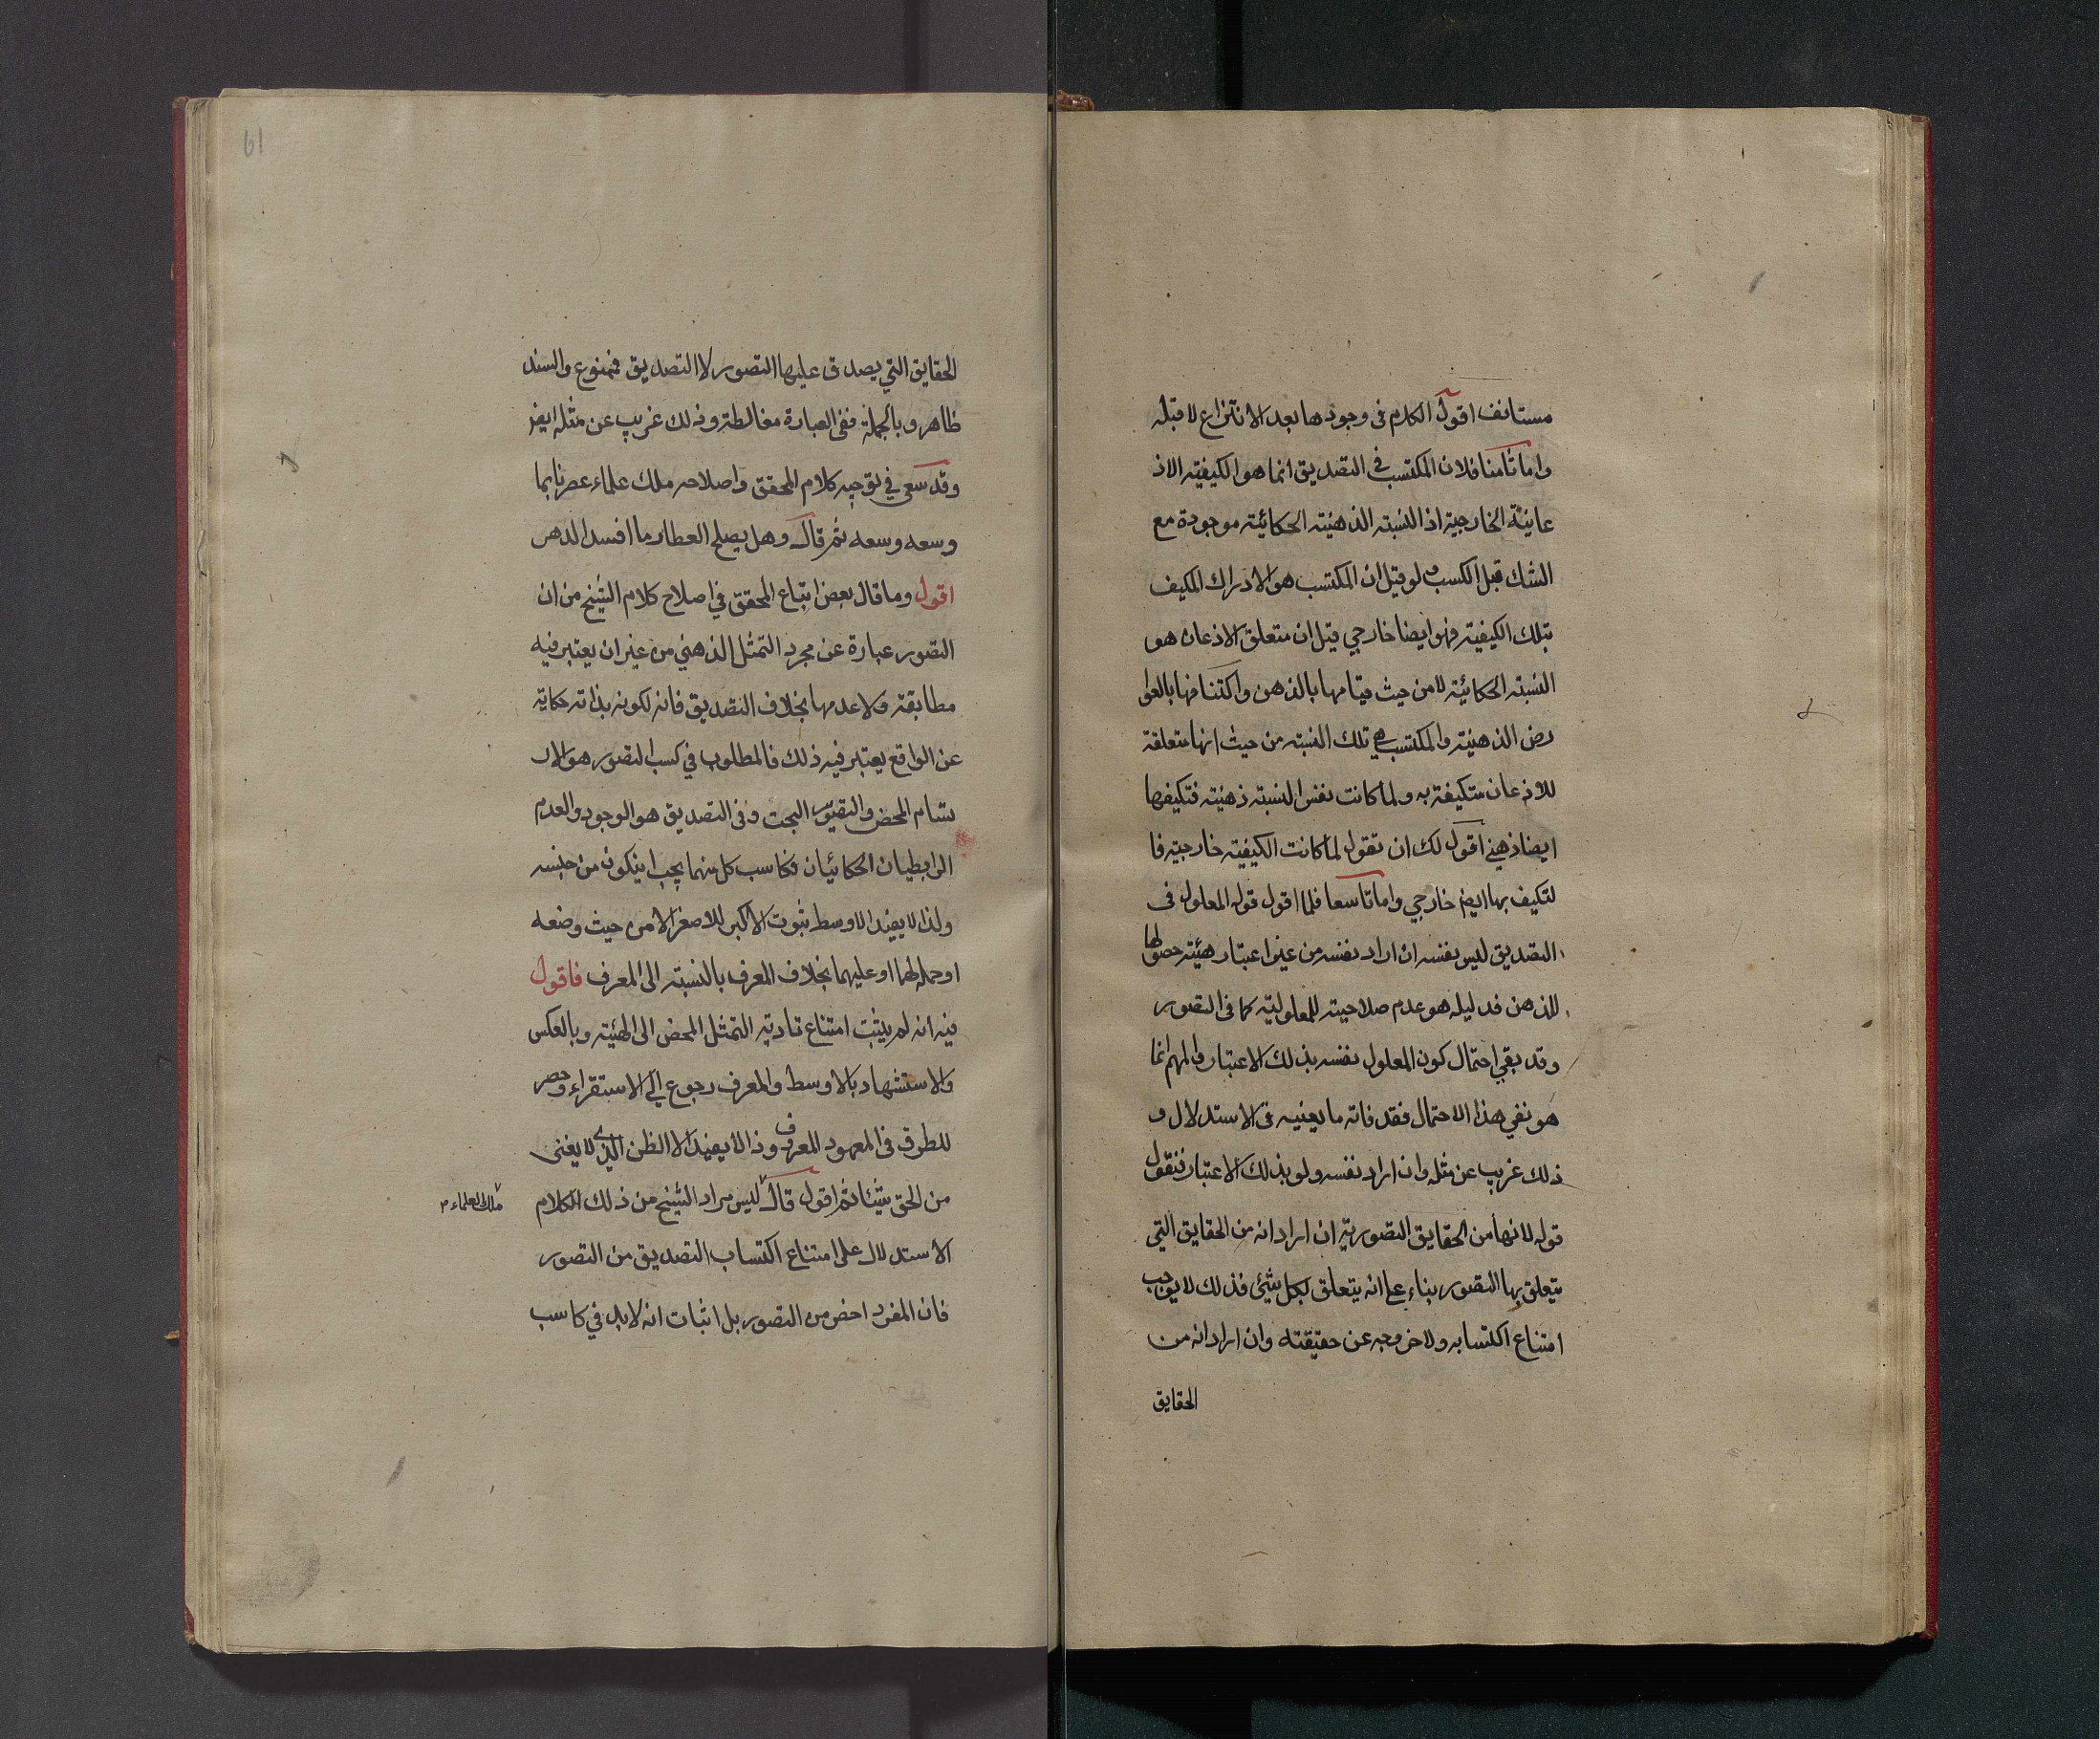 مستانف اقول الكلام فى وجودها بعد الانتزاع لا قبله
واما ثامنا فلان المكتسب فى التصديق انما هو الكيفية الاذ
عانية الخارجية اذ النسبة الذهنية الحكائية موجودة مع
الشك قبل الكسب ولو قيل ان المكتسب هو الادراك المكيف
بتلك الكيفية فهو ايضا خارجي قيل ان متعلق الاذعان هو
النسبة الحكائية لا من حيث قيامها بالذهن واكتنافها بالعوا
رض الذهنية والمكتسب هي تلك النسبة من حيث انها متعلقة
للاذعان متكيفة به ولما كانت نفس النسبة ذهنية فتكيفها
ايضا ذهني اقول لك ان تقول لما كانت الكيفية خارجية فا
لتكيف بها ايضا خارجي واما تاسعا فلما اقول قوله المعلول فى
التصديق ليس نفسه ان اراد نفسه من غير اعتبار هيئة حصولها
للذهن فدليله هو عدم صلاحيته للمعلولية كما فى التصور
وقد بقي احتمال كون المعلول نفسه بذلك الاعتبار والمهم انما
هو نفي هذا الاحتمال فقد فاته ما يعنيه فى الاستدلال و
ذلك غريب عن مثله وان اراد نفسه ولو بذلك الاعتبار فنقول
قوله لانها من الحقايق التصورية ان اراد انه من الحقايق التي
يتعلق بها التصور بناء على انه يتعلق بكل شيئ فذلك لا يوجب
امتناع اكتسابه ولا خروجه عن حقيقته وان اراد انه من
الحقايق
61
الحقايق التي يصدق عليها التصور لا التصديق فممنوع والسند
ظاهر وبالجملة ففى العبارة مغالطة وذلك غريب عن مثله ايضا
وقد سعى في توجيه كلام المحقق واصلاحه ملك علماء عصرنا بما
وسعه وسعه ثم قال وهل يصلح العطار ما افسد الدهر
اقول وما قال بعض اتباع المحقق في اصلاح كلام الشيخ من ان
التصور عبارة عن مجرد التمثل الذهني من غير ان يعتبر فيه
مطابقة ولا عدمها بخلاف التصديق فانه لكونه بذاته حكاية
عن الواقع يعتبر فيه ذلك فالمطلوب في كسب التصور هو الار
تسام المحض والتصور البحت وفى التصديق هو الوجود والعدم
الرابطيان الحكائيان فكاسب كل منهما يجب ان يكون من جنسه
ولذا لا يفيد الاوسط ثبوت الاكبر للاصغر الا من حيث وضعه
او حمله لهما او عليهما بخلاف المعرف بالنسبة الى المعرف فاقول
فيه انه لم يثبت امتناع تادية التمثل المحض الى الهيئة وبالعكس
والاستشهاد بالاوسط والمعرف رجوع الى الاستقراء وحصر
للطرق فى المعهود المعروف وذا لا يفيد الا الظن الذي لا يغنى
من الحق شيئا ثم اقول قال ليس مراد الشيخ من ذلك الكلام
ملك العلماء
الاستدلال على امتناع اكتساب التصديق من التصور
فان المفرد اخص من التصور بل اثبات انه لا بد في كاسب